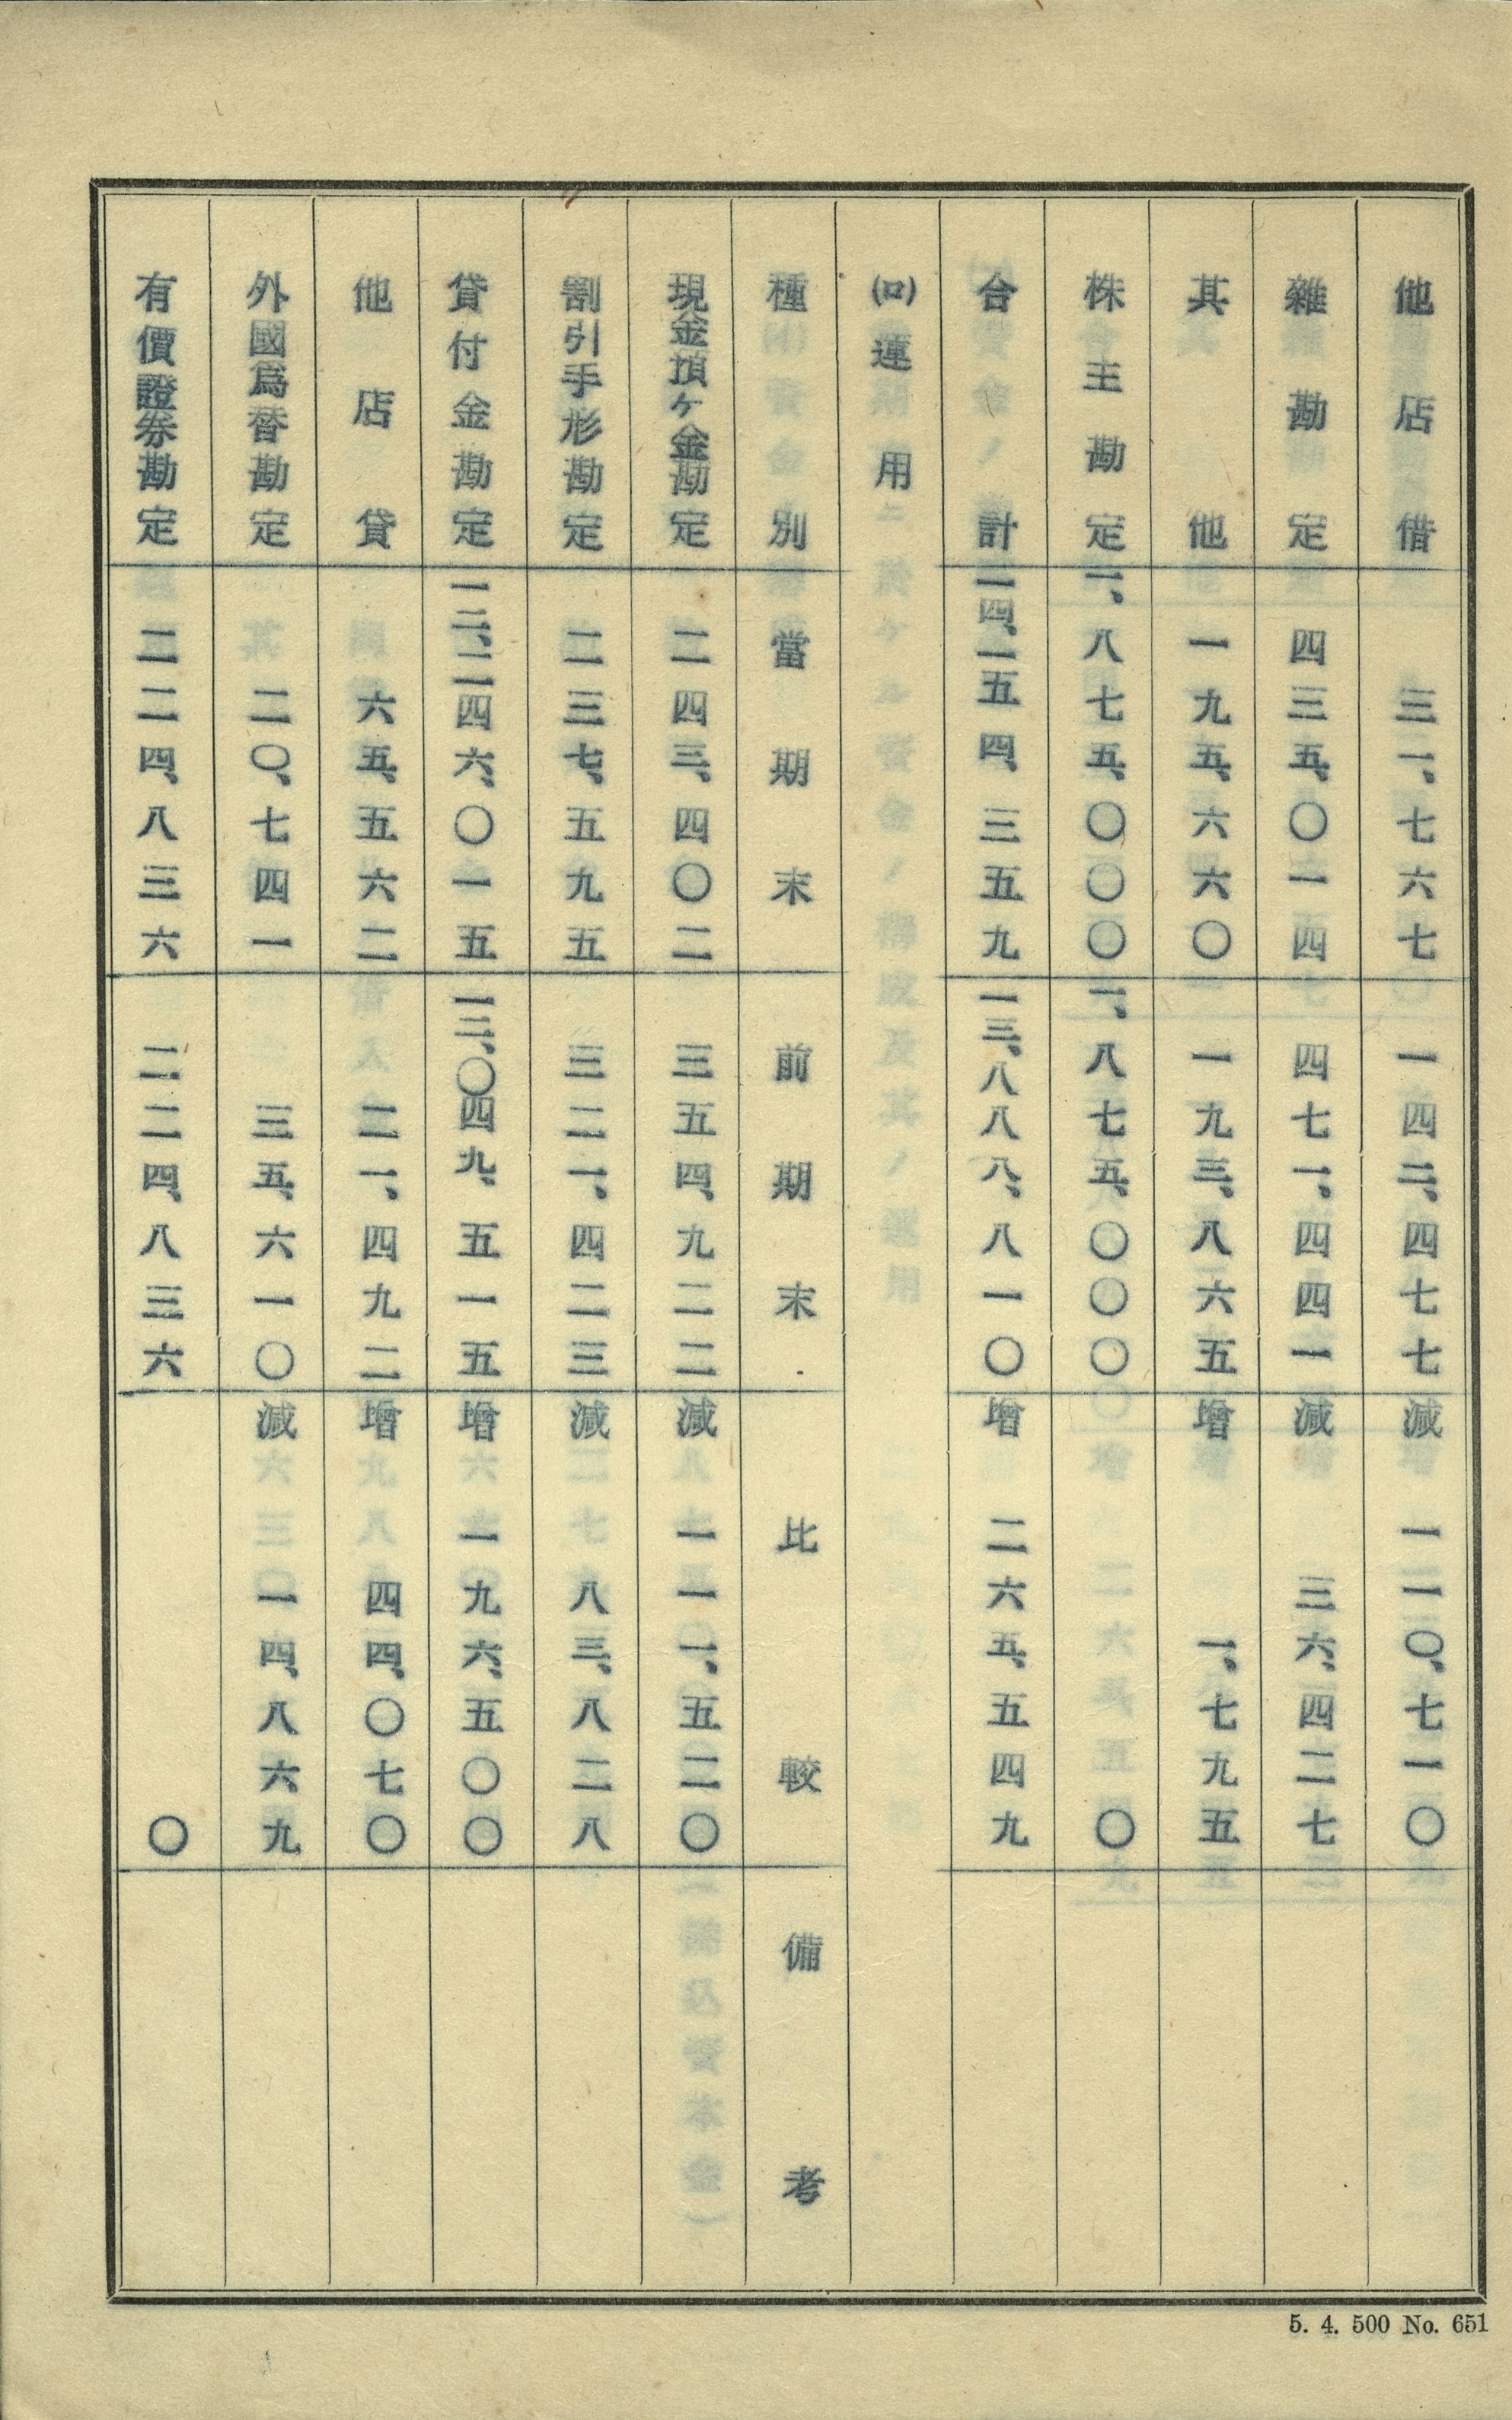 他店借 三一、七六七 一四二、四七七 減 一一〇、七一〇
雜勘定 四三五、〇一四 四七一、四四一 減 三六、四二七
其他 一九五、六六〇 一九三、八六五 增 一、七九五
株主勘定 一、八七五、〇〇〇 一、八七五、〇〇〇 〇
合計 一四、一五四、三五九 一三、八八八、八一〇 增 二六五、五四九
(ロ)運用
種別 當期末 前期末 比較 備考
現金預ケ金勘定 二四三、四〇二 三五四、九二二 減 一一一、五二〇
割引手形勘定 二三七、五九五 三二一、四二三 減 八三、八二八
貸付金勘定 一三、二四六、〇一五 一三、〇四九、五一五 增 一九六、五〇〇
他店貸 六五、五六二 二一、四九二 增 四四、〇七〇
外國爲替勘定 二〇、七四一 三五、六一〇 減 一四、八六九
有價證券勘定 二二四、八三六 二二四、八三六 〇
5. 4. 500 No. 651